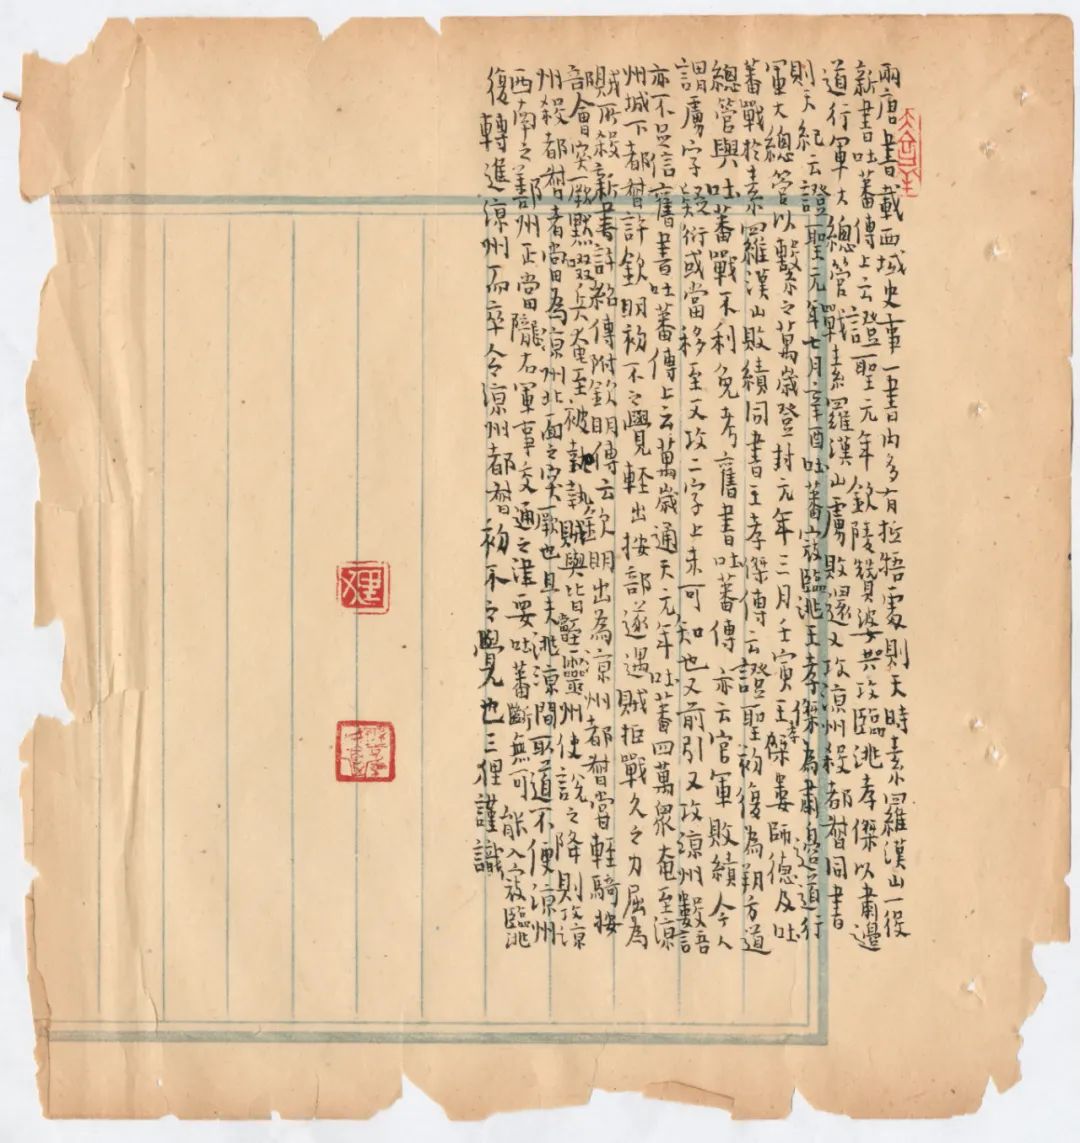 兩唐書載西域史事一書內多有抵牾處則天時素羅漢山一役
新書吐蕃傳上云證聖元年欽陵贊婆攻臨洮孝傑以肅邊
道行軍大總管戰素羅漢山虜敗還又攻涼州殺都督同書
則天紀云證聖元年七月辛酉吐蕃寇臨洮王孝傑為肅邊道行
軍大總管以擊之萬歲登封元年三月壬寅王孝傑婁師德及吐
蕃戰於素羅漢山敗績同書王孝傑傳云證聖初復為朔方道
總管與吐蕃戰不利免考舊書吐蕃傳亦云官軍敗績今人
謂虜字疑衍或當移至又攻二字上未可知也又前引又攻涼州數語
亦不足信舊書吐蕃傳上云萬歲通天元年吐蕃四萬眾奄至涼
州城下都督許欽明初不之覺輕出按部遂遇賊拒戰久之力屈為
賊所殺新書許紹傳附欽明傳云欽明出為涼州都督嘗輕騎按
部會突厥默啜兵奄至被執賊與皆至靈州使說之降則攻涼
州殺都督者當為涼州北面之突厥也且夫洮涼間取道不便涼州
西南之鄯州正當隴右軍事交通之津要吐蕃斷無可能入寇臨洮
復轉進涼州而卒令涼州都督初不之覺也三狸謹識
狸